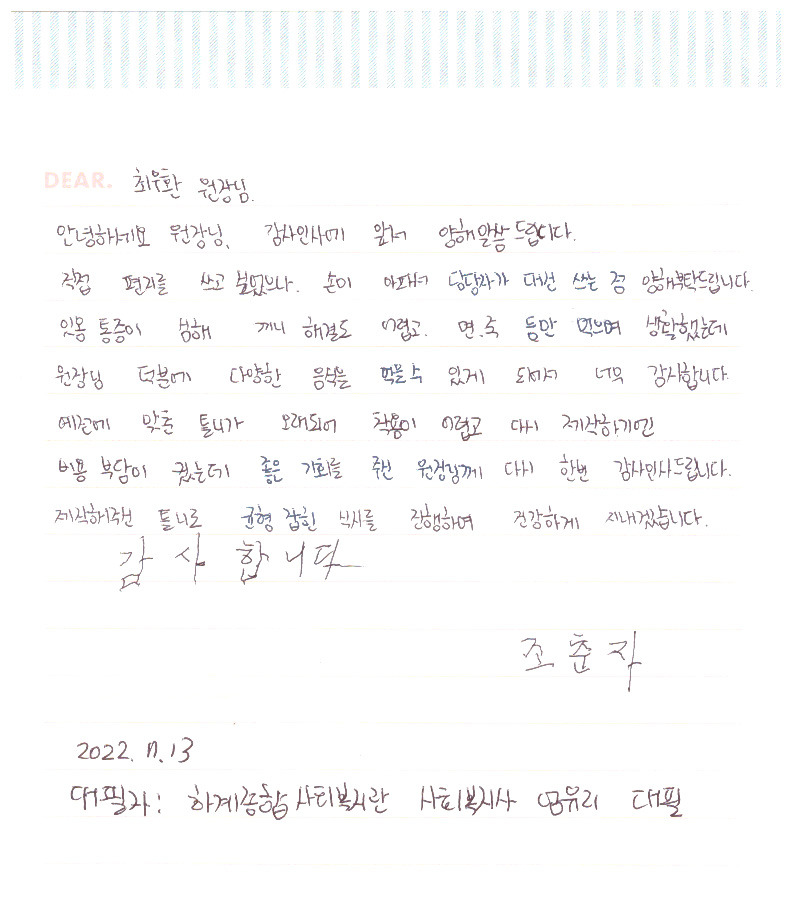 DEAR. 최우환 원장님.
안녕하세요 원장님, 감사인사에 앞서 양해말씀 드립니다.
직접 편지를 쓰고 싶었으나. 손이 아파서 담당자가 대신 쓰는 점 양해부탁드립니다.
잇몸 통증이 심해 끼니 해결도 어렵고. 면,죽 등만 먹으며 생활했는데
원장님 덕분에 다양한 음식을 먹을 수 있게 되어서 너무 감사합니다.
예전에 맞춘 틀니가 오래되어 착용이 어렵고 다시 제작하기엔
비용 부담이 컸는데 좋은 기회를 주신 원장님께 다시 한번 감사인사드립니다.
제작해주신 틀니로 균형 잡힌 식사를 진행하여 건강하게 지내겠습니다.
감 사 합 니 다
조 춘 자
2022. 7. 13
대필자: 하계종합사회복지관 사회복지사 유리 대필